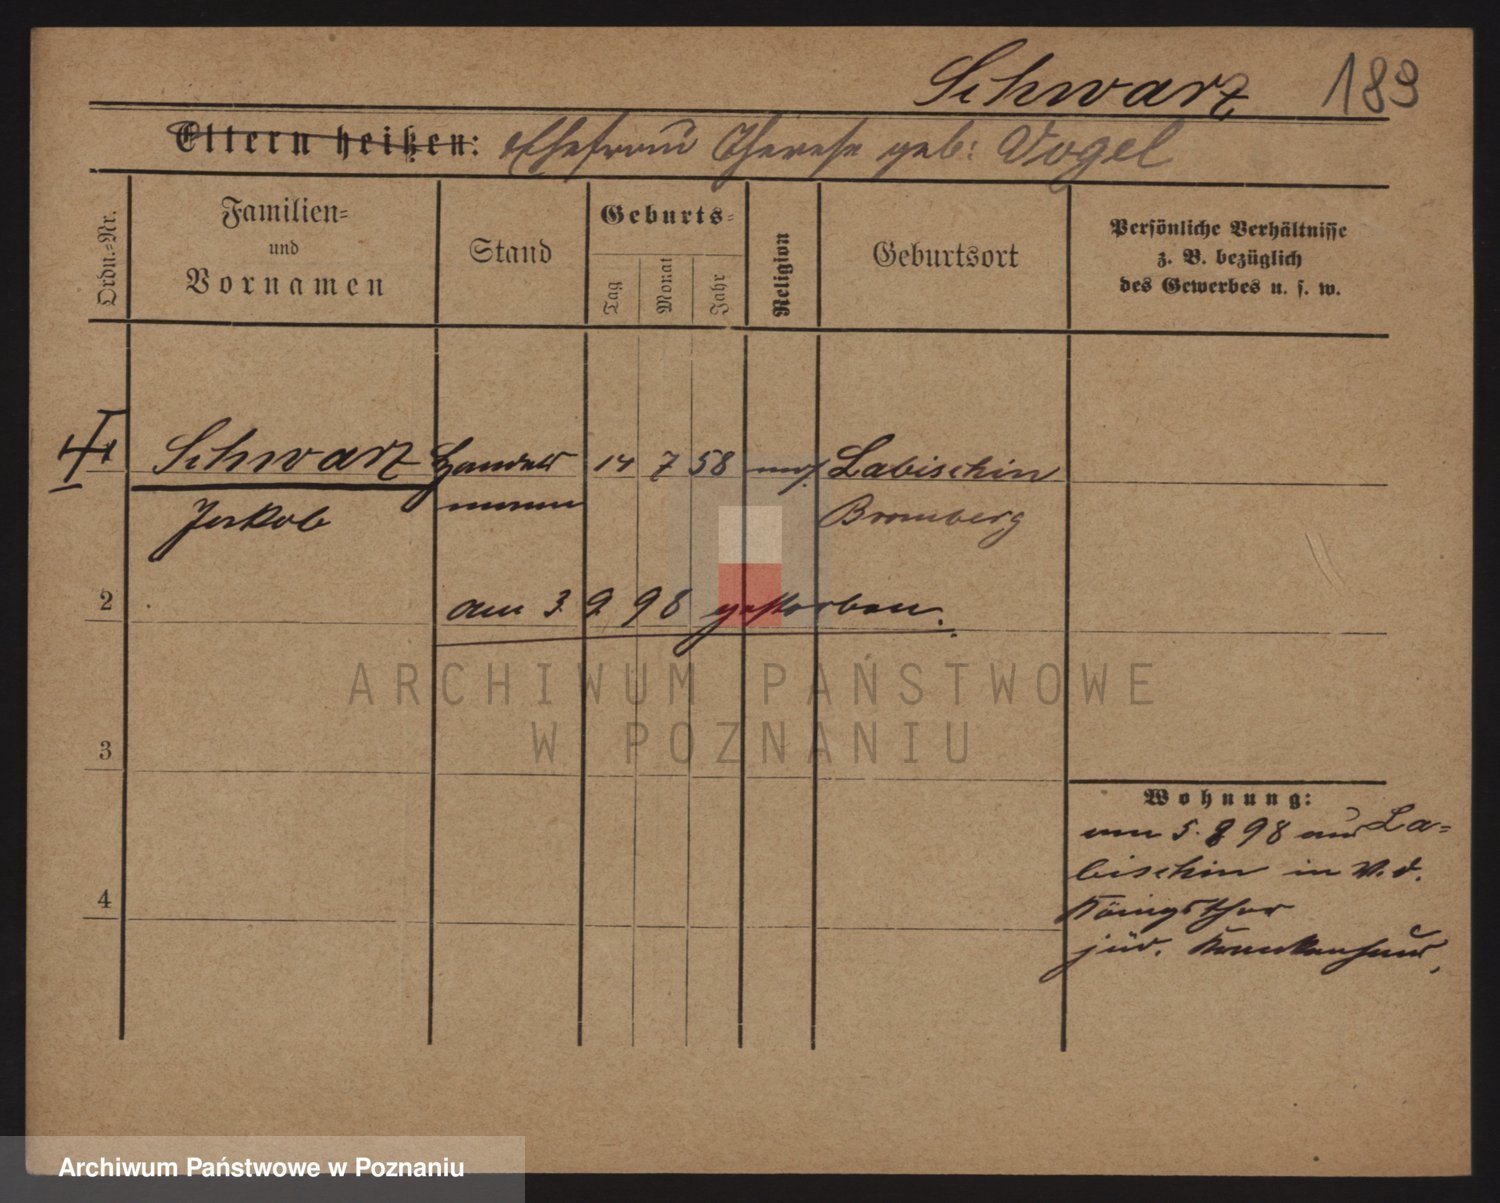 Schwarz 189
Eltern heißen: Ehefrau Therese geb: Vogel
Ordn.=Nr.
Familien=
und
Vornamen
Stand
Geburts=
Tag
Monat
Jahr
Religion
Geburtsort
Persönliche Verhältnisse
z. B. bezüglich
des Gewerbes u. s. w.
Schwarz Handels 14 7 58 mos. Labischin
Jakob mann Bromberg
2
am 3. 9. 98 gestorben.
3
4
Wohnung:
am 5. 8 98 aus La=
bischin in V. d.
Königsthor
jüd. Krankenhaus,
ARCHIWUM PAŃSTWOWE
W POZNANIU
Archiwum Państwowe w Poznaniu